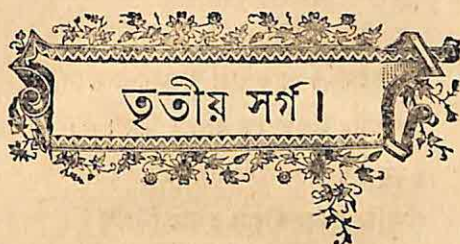 তৃতীয় সর্গ।